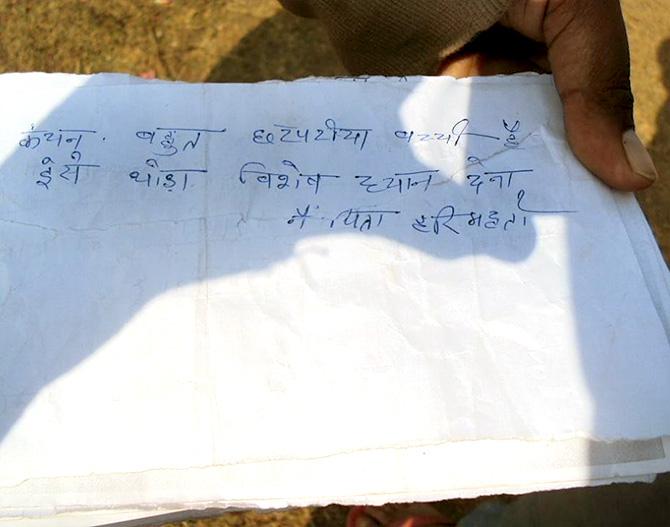 कंचन. बहुत छटपटीया बच्ची है
इसे थोड़ा विशेष ध्यान देना
मैं पिता हरि महतो